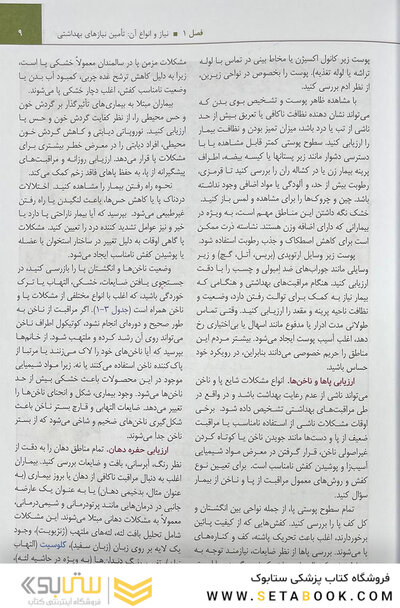 فصل ۱ ■ نیاز و انواع آن: تأمین نیازهای بهداشتی
۹
پوست زیر کانول اکسیژن یا مخاط بینی در تماس با لوله
تراشه یا لوله تغذیه). پوست را بخصوص در نواحی زیرین،
از نظر ادم بررسی کنید.
با مشاهده ظاهر پوست و تشخیص بوی بدن که
می‌تواند نشان دهنده نظافت ناکافی یا تعریق بیش از حد
ناشی از تب یا درد باشد، میزان تمیز بودن و نظافت بیمار
را ارزیابی کنید. سطوح پوستی کمتر قابل مشاهده یا با
دسترسی دشوار مانند زیر پستانها یا کیسه بیضه، اطراف
پرینه بیمار زن یا در کشاله ران را بررسی کنید تا قرمزی،
رطوبت بیش از حد، و آلودگی یا مواد اضافی وجود نداشته
باشد. چین و چروک‌ها را برای مشاهده و لمس باز کنید.
خشک نگه داشتن این مناطق مهم است، به ویژه در
بیمارانی که دارای اضافه وزن هستند. نشاسته ذرت ممکن
است برای کاهش اصطکاک و جذب رطوبت استفاده شود.
پوست زیر وسایل ارتوپدی (بریس، آتل، گچ) و زیر
وسایلی مانند جوراب‌های ضد آمبولی و چسب را با دقت
ارزیابی کنید. هنگام مراقبت‌های بهداشتی و هنگامی که
بیمار نیاز به کمک برای توالت رفتن دارد، وضعیت و
نظافت ناحیه پرینه و مقعد را ارزیابی کنید. وقتی تماس
طولانی مدت ادرار یا مدفوع مانند اسهال یا بی‌اختیاری رخ
دهد، اغلب آسیب پوست ایجاد می‌شود. بیشتر مردم این
مناطق را حریم خصوصی می‌دانند بنابراین، در رویکرد خود
حساس باشید.
ارزیابی پاها و ناخن‌ها. انواع مشکلات شایع پا و ناخن
می‌تواند ناشی از عدم رعایت بهداشت باشد و در واقع در
طی مراقبت‌های بهداشتی تشخیص داده شود. برخی
اوقات مشکلات ناشی از استفاده نامناسب یا مراقبت
ضعیف از پا و دست‌ها مانند جویدن ناخن یا کوتاه کردن
غیراصولی ناخن، قرار گرفتن در معرض مواد شیمیایی
آسیب‌زا و پوشیدن کفش نامناسب است. برای تعیین نوع
کفش و روش‌های معمول مراقبت از پا و ناخن از بیمار
سؤال کنید.
تمام سطوح پوستی پا، از جمله نواحی بین انگشتان و
کل کف پا را بررسی کنید. کفش‌هایی که از کیفیت پائین
برخوردارند، اغلب باعث تحریک پاشنه، کف و کناره‌های
پا می‌شوند. بررسی پاها از نظر ضایعات، نیازمند توجه به
مشکلات مزمن پا در سالمندان معمولاً خشکی پا است،
زیرا به دلیل کاهش ترشح غده چربی، کمبود آب بدن یا
وضعیت نامناسب کفش، اغلب دچار خشکی می‌شوند.
بیماران مبتلا به بیماری های تأثیرگذار بر گردش خون
و حس محیطی را، از نظر کفایت گردش خون و حس پا
ارزیابی کنید. نوروپاتی دیابتی و کاهش گردش خون
محیطی، افراد دیابتی را در معرض خطر بیشتری برای
مشکلات پا قرار می‌دهد. ارزیابی روزانه و مراقبت‌های
پیشگیرانه از پا، به حفظ پاهای فاقد زخم کمک می‌کند.
نحوه راه رفتن بیمار را مشاهده کنید. اختلالات
دردناک پا یا کاهش حس‌ها، باعث لنگیدن یا راه رفتن
غیرطبیعی می‌شود. بپرسید که آیا بیمار ناراحتی پا دارد یا
خیر و نیز عوامل تشدید کننده درد را تعیین کنید. مشکلات
پا گاهی اوقات به دلیل تغییر در ساختار استخوان یا عضله
یا پوشیدن کفش نامناسب ایجاد می‌شود.
وضعیت ناخن‌ها و انگشتان پا را بازرسی کنید، در
جستجوی یافتن ضایعات، خشکی، التهاب یا ترک
خوردگی باشید، که اغلب با انواع مختلفی از مشکلات پا و
ناخن همراه است (جدول ۳–۱). اگر مراقبت از ناخن به
طور صحیح و دوره‌ای انجام نشود، کوتیکول اطراف ناخن
می‌تواند روی آن رشد کرده و ملتهب شود. از خانم‌ها
بپرسید که آیا ناخن‌های خود را لاک می‌زنند یا مرتبا از
پاک کننده ناخن استفاده می‌کنند یا نه، زیرا مواد شیمیایی
موجود در این محصولات باعث خشکی بیش از حد
ناخن‌ها می‌شود. وجود بیماری، شکل و انحنای ناخن‌ها را
تغییر می‌دهد. ضایعات التهابی و قارچ بستر ناخن باعث
شکل‌گیری ناخن‌های ضخیم و شاخی می‌شود که از بستر
ناخن جدا می‌شوند.
ارزیابی حفره دهان. تمام مناطق دهان را به دقت از
نظر رنگ، آبرسانی، بافت و ضایعات بررسی کنید. بیماران
اغلب به دنبال مراقبت ناکافی از دهان یا بروز بیماری (به
عنوان مثال، بدخیمی دهان) یا به عنوان یک عارضه
جانبی در درمان‌هایی مانند پرتودرمانی و شیمی‌درمانی،
معمولاً به مشکلات دهانی مبتلا می‌شوند. این مشکلات
شامل تحلیل بافت لثه، لثه‌های ملتهب (ژنژیویت)، وجود
یک لایه بر روی زبان (زبان سفید)، کلوسیت (التهاب
فروشگاه کتاب پزشکی ستابوک
WWW.SETABOOK.COM
ستابوک
فروشگاه اینترنتی کتاب